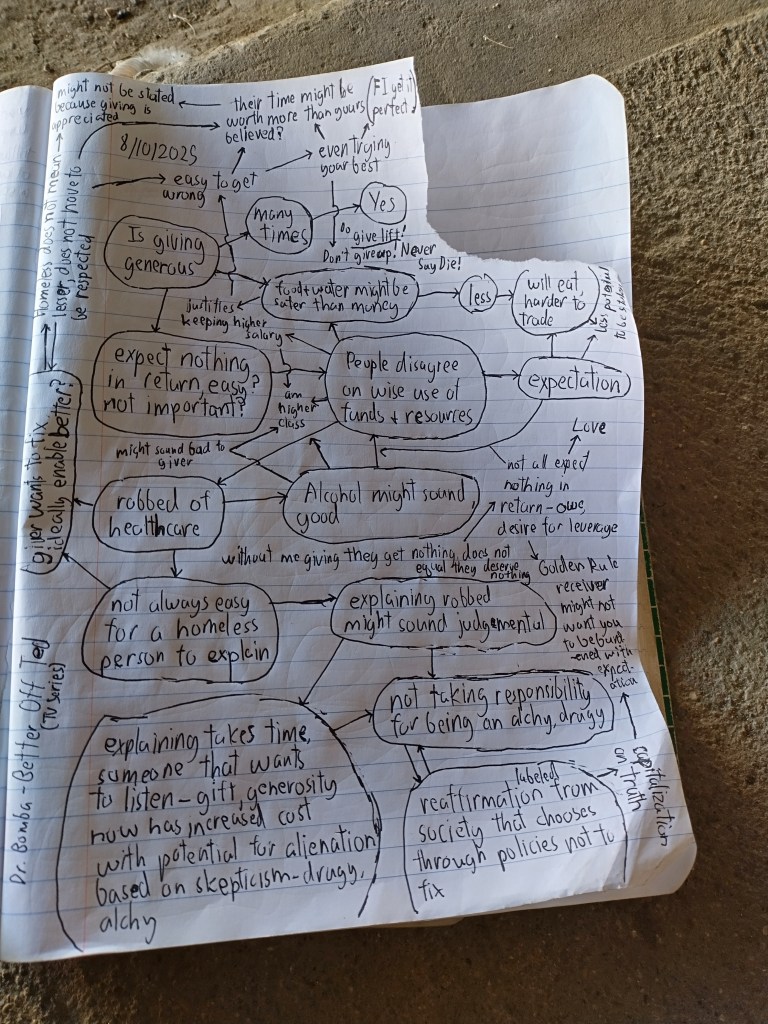 might not be stated
because giving is
appreciated
their time might be
worth more than yours
believed?
(FI yet it
perfect)
8/10/2025
even trying
your best
easy to get
wrong
many
times
Yes
Do give lift!
Don't give up! Never
Say Die!
Is giving
generous
food + water might be
safer than money
less
will eat,
harder to
trade
less potential
to be
justifies
keeping higher
salary
expect nothing
in return, easy?
not important?
People disagree
on wise use of
funds + resources
expectation
am
higher
class
Love
might sound bad to
giver
not all expect
nothing in
return - owe,
desire for leverage
robbed of
healthcare
Alcohol might sound
good
without me giving they get nothing does not
equal they deserve
nothing
Golden Rule
receiver
might not
want you
to be burd
-ened with
expect
-ation
not always easy
for a homeless
person to explain
explaining robbed
might sound judgemental
not taking responsibility
for being an alchy, drugy
explaining takes time,
someone that wants
to listen - gift, generosity
now has increased cost
with potential for alienation
based on skepticism - drugy,
alchy
labeled
reaffirmation from
society that chooses
through policies not to
fix
capitalization
on truth
Homeless does not mean
lesser, does not have to
be respected
giver wants to fix,
ideally enable better?
Dr. Bomba - Better Off Ted
(TV series)